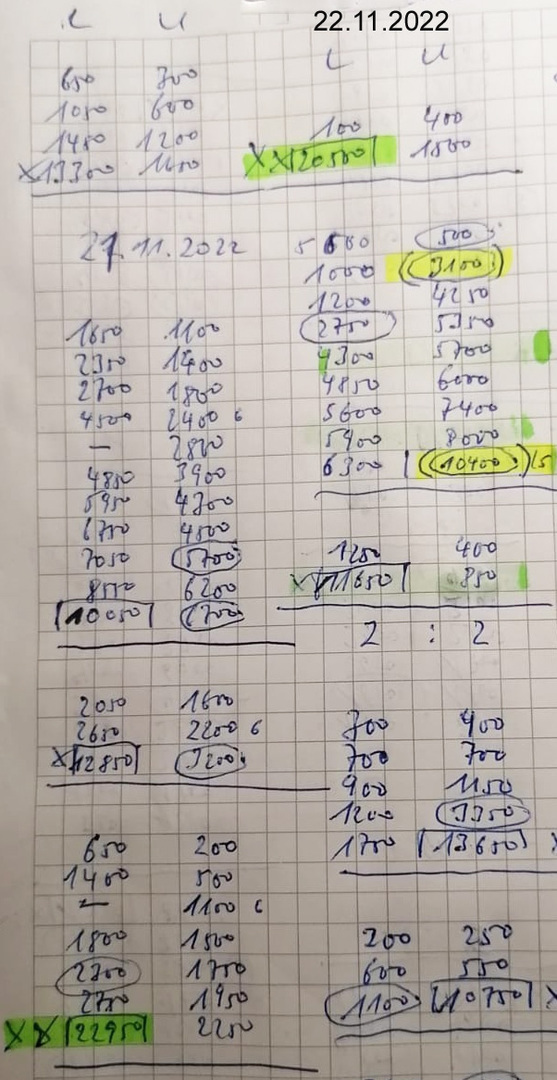 22.11.2022
L U
650 300
1050 600
1450 1200
X13300 1650
27.11.2022
1650 1100
2350 1400
2700 1800
4500 2400 6
— 2800
4850 3900
5950 4300
6750 4500
7050 5700
8550 6200
10050
2050 1600
2650 2200 6
X12850 3200
650 200
1400 500
— 1100 6
1800 1500
2300 1750
2750 1950
XX 22950 2250
L U
100 400
XX 20500 1500
500
1000 3100
1200 4250
2750 5350
4300 5700
4850 6000
5600 7400
5900 8000
6300 10400
1250 400
11650 850
2 : 2
300 400
700 700
900 1150
1200 3350
1700 13650
200 250
600 550
1100 10750 X